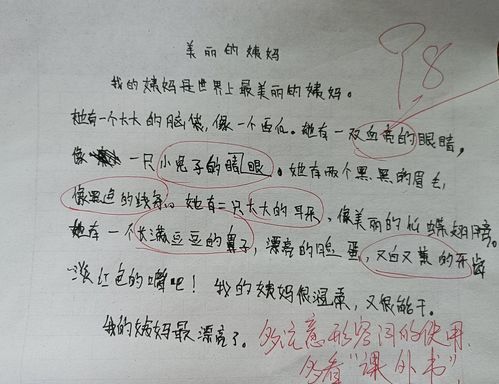 美丽的姨妈
我的姨妈是世界上最美丽的姨妈。
她有一个大大的脑袋，像一个西瓜。她有一双血亮的眼睛，
像一只小兔子的眼。她有两个黑黑的眉毛，
像黑色的蚊香。她有二只大大的耳朵，像美丽的蝴蝶翅膀。
她有一个长满豆豆的鼻子，漂亮的脸蛋，又白又黄的牙齿
淡红色的嘴吧！我的姨妈很温柔，又很能干。
我的姨妈最漂亮了。
8
多注意形容词的使用.
多看“课外书”